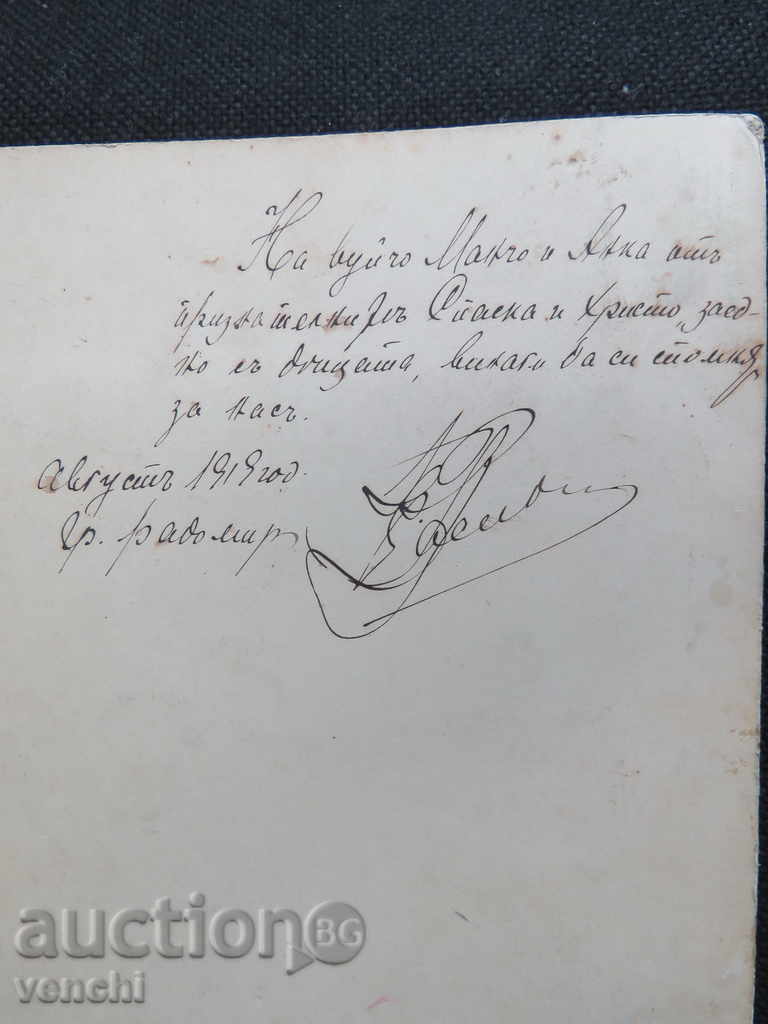 На вуйчо Манчо и Анка отъ
признателните Спаска и Христо, заед-
но съ дещата, винаги да си спомня
за насъ.
Августъ 1919 год.
Гр. Радомир
auctionBG
venchi